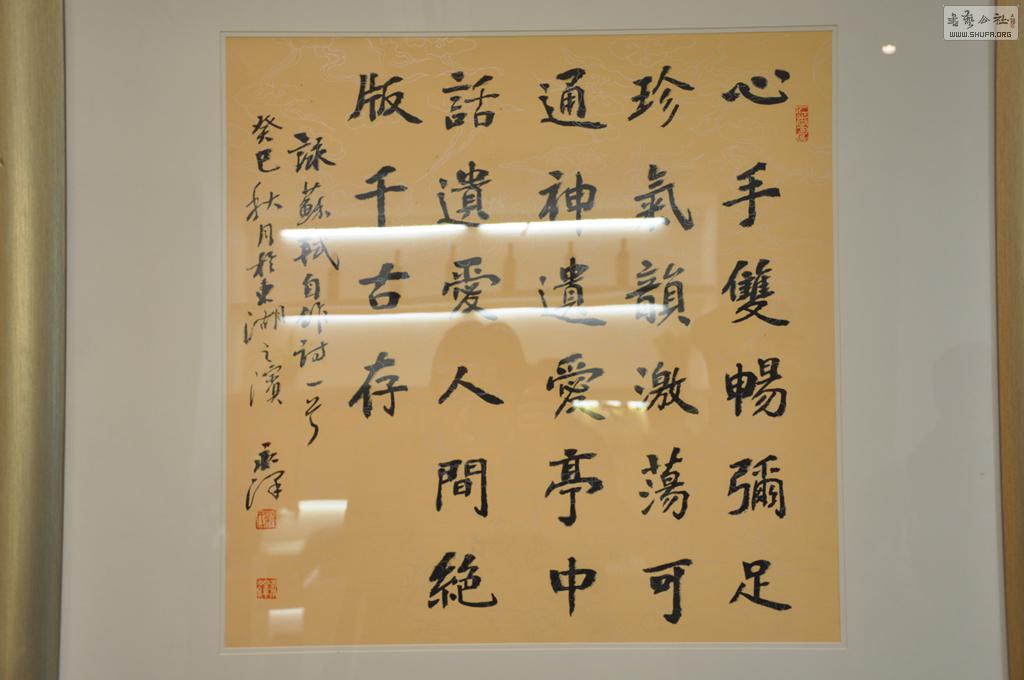 心手雙暢彌足
珍氣韻激蕩可
通神遺愛亭中
話遺愛人間絕
版千古存
詠蘇軾自作詩一首
癸巳秋月於東湖之濱 承澤
书艺公社
WWW.SHUFA.ORG